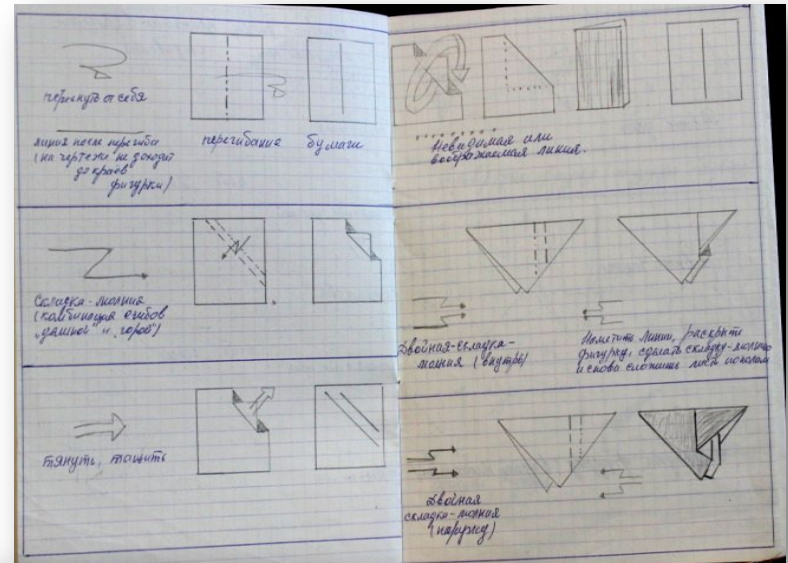 перегнуть от себя
линия после перегиба
(на чертежи не доходит
до краёв
фигурки)
перегибание бумаги
Складка-молния
(комбинация сгибов
"долиной" и "горой")
тянуть, тащить
Невидимая или
воображаемая линия.
Двойная-складка-
молния (внутрь)
Наметить линии, раскрыть
фигурку, сделать складку-молнию
и снова сложить лист пополам
Двойная
складка-молния
(наружу)